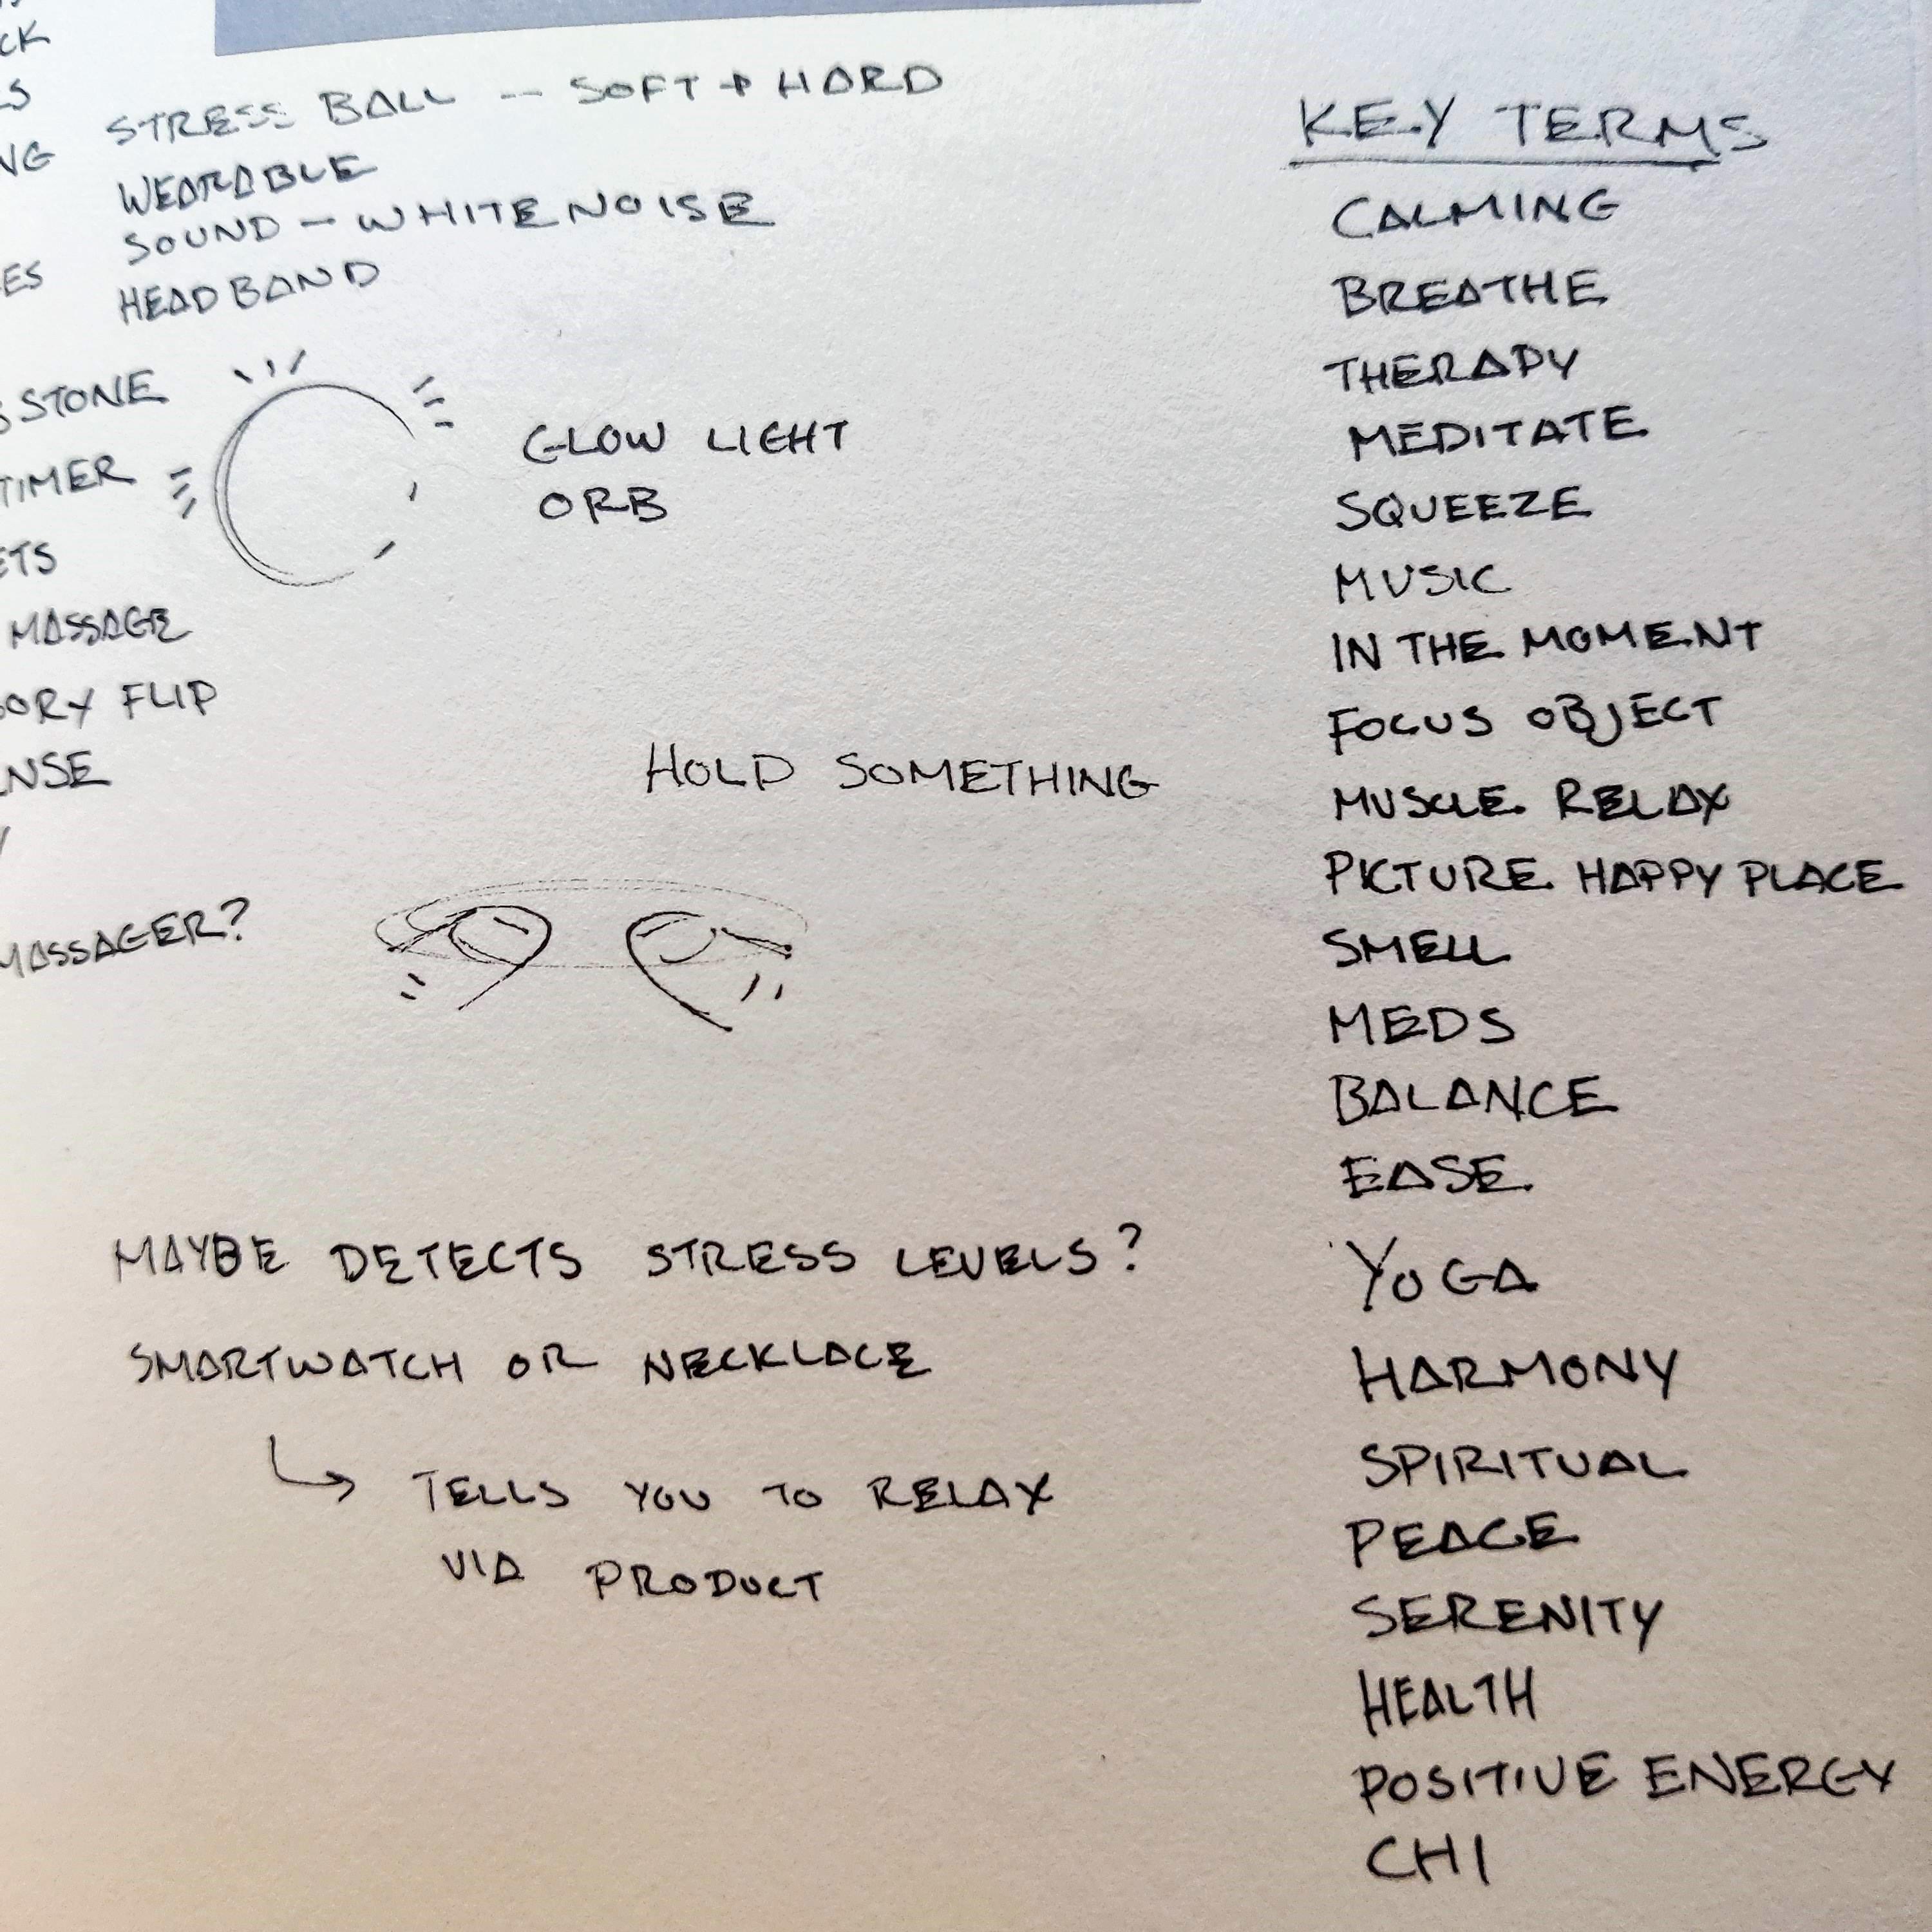 STRESS BALL -- SOFT + HARD
WEARABLE
SOUND - WHITE NOISE
HEADBAND
STONE
TIMER
MASSAGE
FLIP
MASSAGER?
GLOW LIGHT
ORB
HOLD SOMETHING
MAYBE DETECTS STRESS LEVELS?
SMARTWATCH OR NECKLACE
↳ TELLS YOU TO RELAX
VIA PRODUCT
KEY TERMS
CALMING
BREATHE
THERAPY
MEDITATE
SQUEEZE
MUSIC
IN THE MOMENT
FOCUS OBJECT
MUSCLE RELAX
PICTURE HAPPY PLACE
SMELL
MEDS
BALANCE
EASE
YOGA
HARMONY
SPIRITUAL
PEACE
SERENITY
HEALTH
POSITIVE ENERGY
CHI